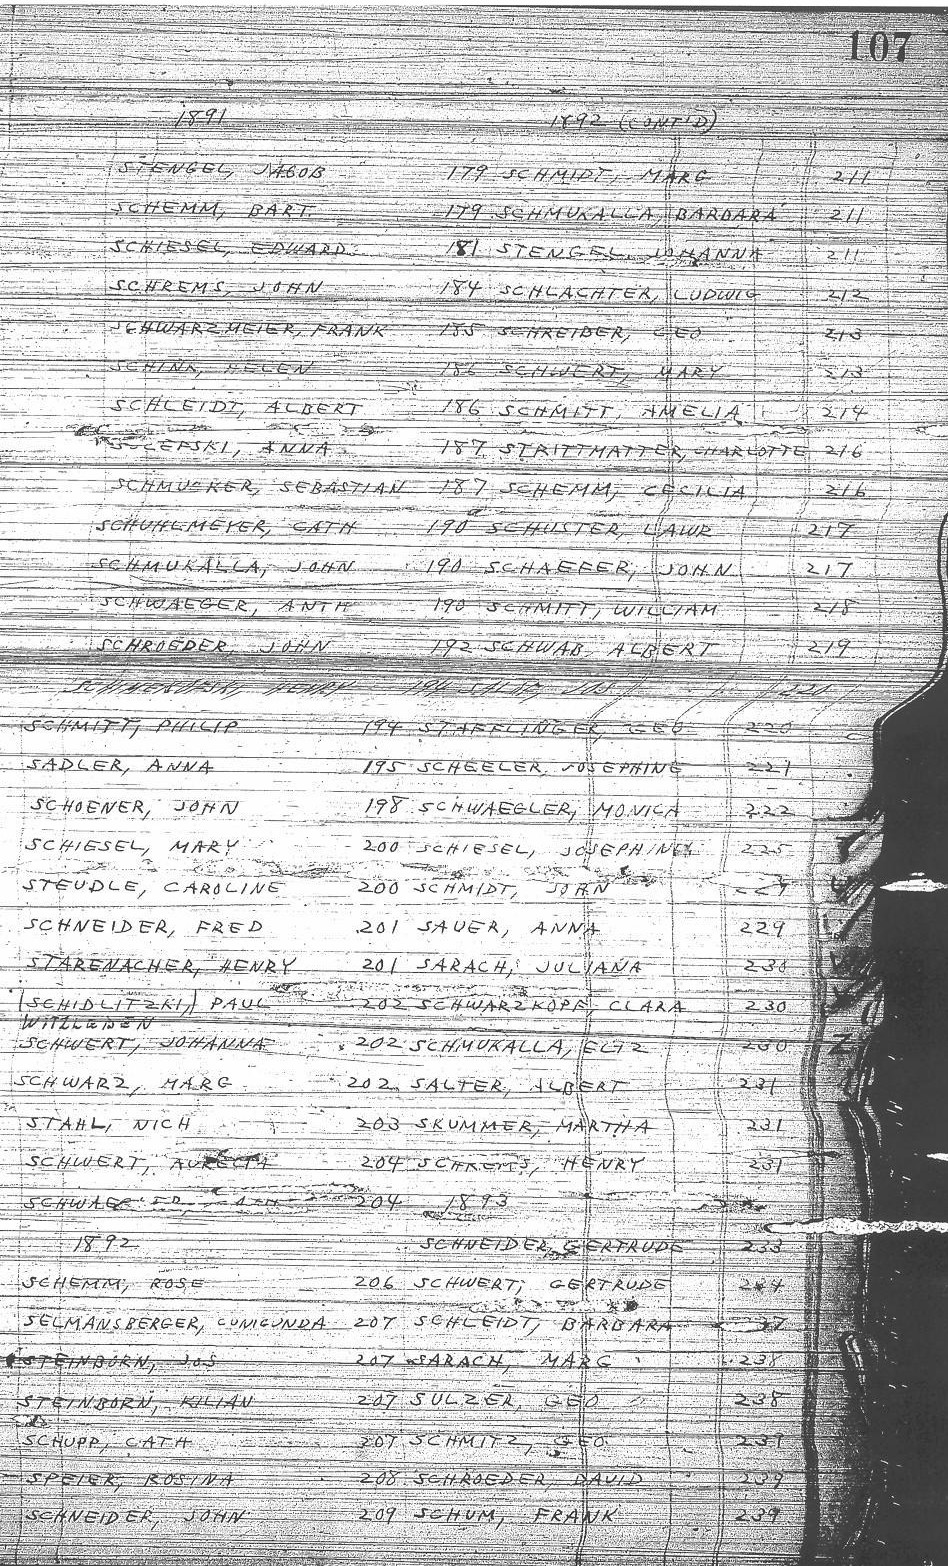 107
1891 1892 (CONT'D)
STENGEL, JACOB 179 SCHMIDT, MARG 211
SCHEMM, BART. 179 SCHMUKALLA, BARBARA 211
SCHIESEL, EDWARD 181 STENGEL, JOHANNA 211
SCHREMS, JOHN 184 SCHLACHTER, LUDWIG 212
SCHWARZMEIER, FRANK 185 SCHREIBER, GEO 213
SCHINK, HELEN 186 SCHWERT, MARY 213
SCHLEIDT, ALBERT 186 SCHMITT, AMELIA 214
ANNA 187 STRITTMATTER, CHARLOTTE 216
SCHMUCKER, SEBASTIAN 187 SCHEMM, CECILIA 216
SCHUHLMEYER, CATH 190 SCHUSTER, LAWR 217
SCHMUKALLA, JOHN 190 SCHAEFER, JOHN 217
SCHWAEGER, ANTH 190 SCHMITT, WILLIAM 218
SCHROEDER, JOHN 192 SCHWAB, ALBERT 219
HENRY 194 JOS 220
SCHMITT, PHILIP 194 STAFFLINGER, GEO 220
SADLER, ANNA 195 SCHEELER, JOSEPHINE 221
SCHOENER, JOHN 198 SCHWAEGLER, MONICA 222
SCHIESEL, MARY 200 SCHIESEL, JOSEPHINE 225
STEUDLE, CAROLINE 200 SCHMIDT, JOHN
SCHNEIDER, FRED 201 SAUER, ANNA 229
STARENACHER, HENRY 201 SARACH, JULIANA 230
(SCHIDLITZKI) PAUL 202 SCHWARZKOPF, CLARA 230
WITZLEBEN
SCHWERT, JOHANNA 202 SCHMUKALLA, ELIZ 230
SCHWARZ, MARG 202 SALTER, ALBERT 231
STAHL, NICH 203 SKUMMER, MARTHA 231
SCHWERT, AURELIA 204 SCHREMS, HENRY 231
204 1893
1892 SCHNEIDER, GERTRUDE 233
SCHEMM, ROSE 206 SCHWERT, GERTRUDE
SELMANSBERGER, CUNIGUNDA 207 SCHLEIDT, BARBARA
STEINBORN, JOS 207 SARACH, MARG 238
STEINBORN, KILIAN 207 SULZER, GEO 238
SCHUPP, CATH 207 SCHMITZ, GEO 239
SPEIER, ROSINA 208 SCHROEDER, DAVID 239
SCHNEIDER, JOHN 209 SCHUM, FRANK 239